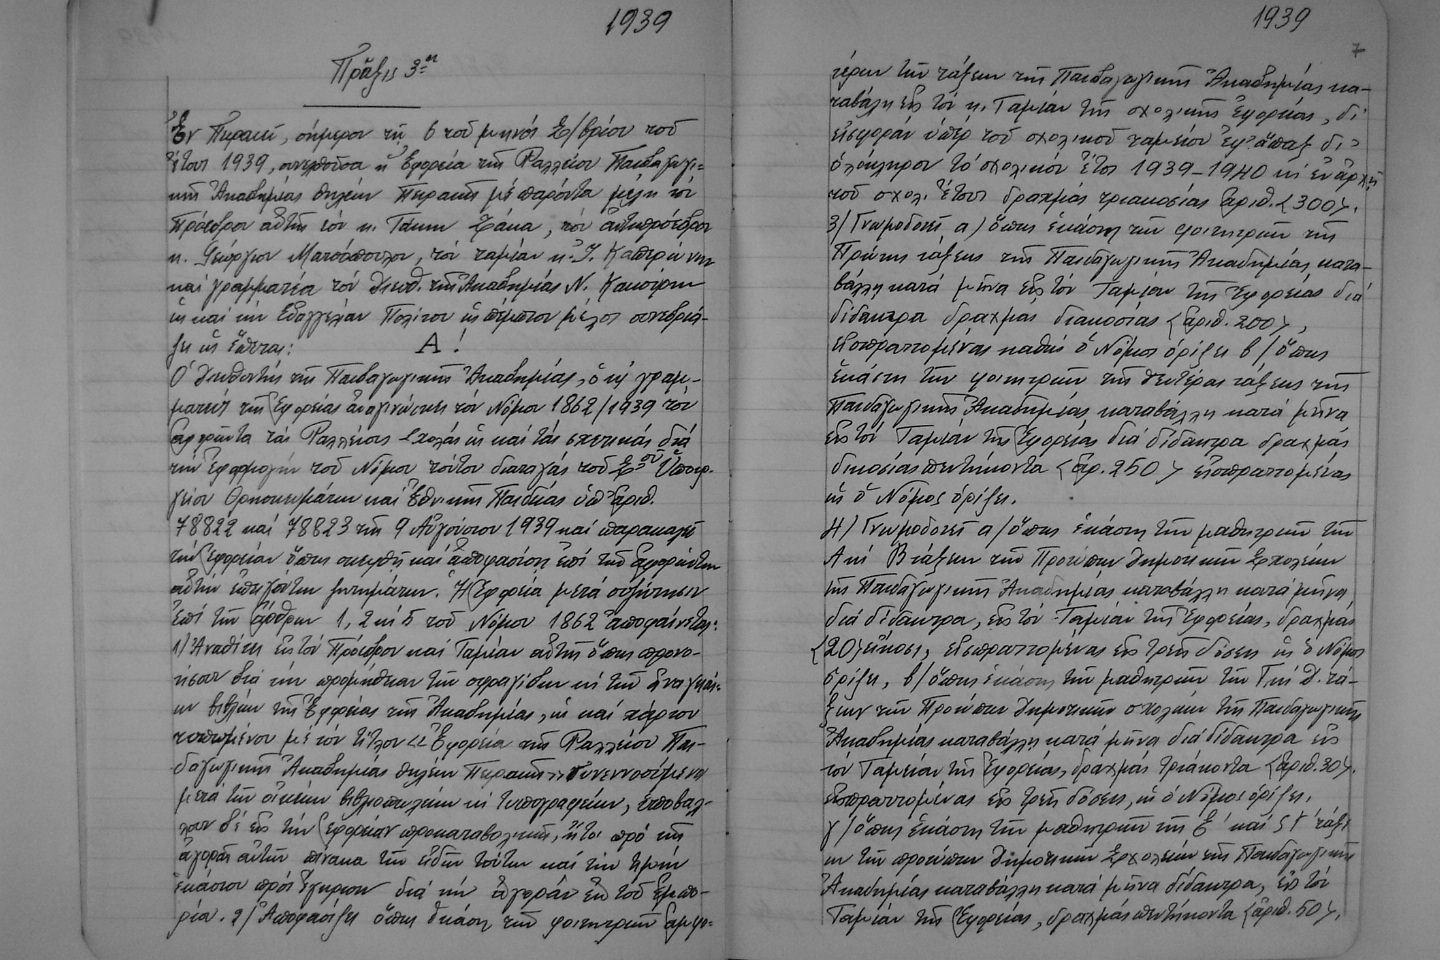 1939
Πρᾶξις 3η
Ἐν Πειραιεῖ, σήμερον τῇ 6 τοῦ μηνὸς 7/βρίου τοῦ
ἔτους 1939, συνελθοῦσα ἡ Ἐφορεία τῆς Ραλλείου Παιδαγωγι-
κῆς Ἀκαδημίας Θηλέων Πειραιῶς μὲ παρόντα μέλη τὸν
Πρόεδρον αὐτῆς τὸν κ. Τάκην, τὸν ἀντιπρόεδρον
κ. Γεώργιον Ματσόπουλον, τὸν ταμίαν κ. Ι.
καὶ γραμματέα τὸν Διευθ. τῆς Ἀκαδημίας Ν.
ὡς καὶ τὴν Εὐαγγελίαν Πολίτου ὡς πέμπτον μέλος συνεδριά-
ζει ὡς ἕπεται: Α!
Ὁ Διευθυντὴς τῆς Παιδαγωγικῆς Ἀκαδημίας, ὁ κ) γραμ-
ματεὺς τῆς Ἐφορείας ἀναγινώσκει τὸν Νόμον 1862/1939 τὸν
ἀφορῶντα τὰς Ραλλείους Σχολὰς ὡς καὶ τὰς σχετικὰς διὰ
τὴν ἐφαρμογὴν τοῦ Νόμου τούτου διαταγὰς τοῦ Σ. Ὑπουρ-
γείου Θρησκευμάτων καὶ Ἐθνικῆς Παιδείας ὑπ' ἀριθ.
78822 καὶ 78823 τῆς 9 Αὐγούστου 1939 καὶ παρακαλεῖ
τὴν Ἐφορείαν ὅπως σκεφθῇ καὶ ἀποφασίσῃ ἐπὶ τῶν ἀφορώντων
αὐτὴν ἐπειγόντων ζητημάτων. Ἡ Ἐφορεία μετὰ συζήτησιν
ἐπὶ τῶν ἄρθρων 1, 2 κ) 5 τοῦ Νόμου 1862 ἀποφαίνεται:
1) Ἀναθέτει εἰς τὸν Πρόεδρον καὶ Ταμίαν αὐτῆς ὅπως προνο-
ήσουν διὰ τὴν προμήθειαν τῶν σφραγίδων κ) τῶν ἀναγκαί-
ων βιβλίων τῆς Ἐφορείας τῆς Ἀκαδημίας, ὡς καὶ χάρτου
τυπωμένου μὲ τὸν τίτλον «Ἐφορεία τῆς Ραλλείου Παι-
δαγωγικῆς Ἀκαδημίας Θηλέων Πειραιῶς» συνεννοούμενοι
μετὰ τῶν οἰκείων βιβλιοπωλείων κ) τυπογραφείων, ὑποβάλ-
λουν δὲ εἰς τὴν Ἐφορείαν προκαταβολικῶς, ἤτοι πρὸ τῆς
ἀγορᾶς αὐτῶν πίνακα τῶν εἰδῶν τούτων καὶ τὴν τιμὴν
ἑκάστου πρὸς ἔγκρισιν διὰ τὴν ἀγορὰν ἐκ τοῦ Ἐμπο-
ρίου. 2) Ἀποφασίζει ὅπως ἑκάστη τῶν φοιτητριῶν ἀμφο-
1939
7
τέρων τῶν τάξεων τῆς Παιδαγωγικῆς Ἀκαδημίας κα-
ταβάλῃ εἰς τὸν κ. Ταμίαν τῆς σχολικῆς ἐφορείας, δι'
εἰσφορὰν ὑπὲρ τοῦ σχολικοῦ ταμείου ἐφ' ἅπαξ δι'
ὁλόκληρον τὸ σχολικὸν ἔτος 1939-1940 κ) ἐν ἀρχῇ
τοῦ σχολ. ἔτους δραχμὰς τριακοσίας ἀριθ. <300>.
3) Γνωμοδοτεῖ α) ὅπως ἑκάστη τῶν φοιτητριῶν τῆς
Πρώτης τάξεως τῆς Παιδαγωγικῆς Ἀκαδημίας κατα-
βάλλῃ κατὰ μῆνα εἰς τὸν Ταμίαν τῆς Ἐφορείας διὰ
δίδακτρα δραχμὰς διακοσίας <ἀριθ. 200>,
εἰσπραττομένας καθὼς ὁ Νόμος ὁρίζει β) ὅπως
ἑκάστη τῶν φοιτητριῶν τῆς δευτέρας τάξεως τῆς
Παιδαγωγικῆς Ἀκαδημίας καταβάλλῃ κατὰ μῆνα
εἰς τὸν Ταμίαν τῆς Ἐφορείας διὰ δίδακτρα δραχμὰς
διακοσίας πεντήκοντα <ἀρ. 250> εἰσπραττομένας
ὡς ὁ Νόμος ὁρίζει.
4) Γνωμοδοτεῖ α) ὅπως ἑκάστη τῶν μαθητριῶν τῶν
Α κ) Β τάξεων τῶν Προτύπων Δημοτικῶν Σχολείων
τῆς Παιδαγωγικῆς Ἀκαδημίας καταβάλλῃ κατὰ μῆνα
διὰ δίδακτρα, εἰς τὸν Ταμίαν τῆς Ἐφορείας, δραχμὰς
<20> εἴκοσι, εἰσπραττομένας εἰς τρεῖς δόσεις ὡς ὁ Νόμος
ὁρίζει, β) ὅπως ἑκάστη τῶν μαθητριῶν τῶν Γ κ) Δ. τά-
ξεων τῶν Προτύπων Δημοτικῶν σχολείων τῆς Παιδαγωγικῆς
Ἀκαδημίας καταβάλλῃ κατὰ μῆνα διὰ δίδακτρα εἰς
τὸν Ταμίαν τῆς Ἐφορείας, δραχμὰς τριάκοντα <ἀριθ. 30>,
εἰσπραττομένας εἰς τρεῖς δόσεις, ὡς ὁ Νόμος ὁρίζει,
γ) ὅπως ἑκάστη τῶν μαθητριῶν τῆς Ε' καὶ ΣΤ' τάξε-
ων τῶν προτύπων Δημοτικῶν Σχολείων τῆς Παιδαγωγικῆς
Ἀκαδημίας καταβάλλῃ κατὰ μῆνα δίδακτρα, εἰς τὸν
Ταμίαν τῆς Ἐφορείας, δραχμὰς πεντήκοντα <ἀριθ. 50>,